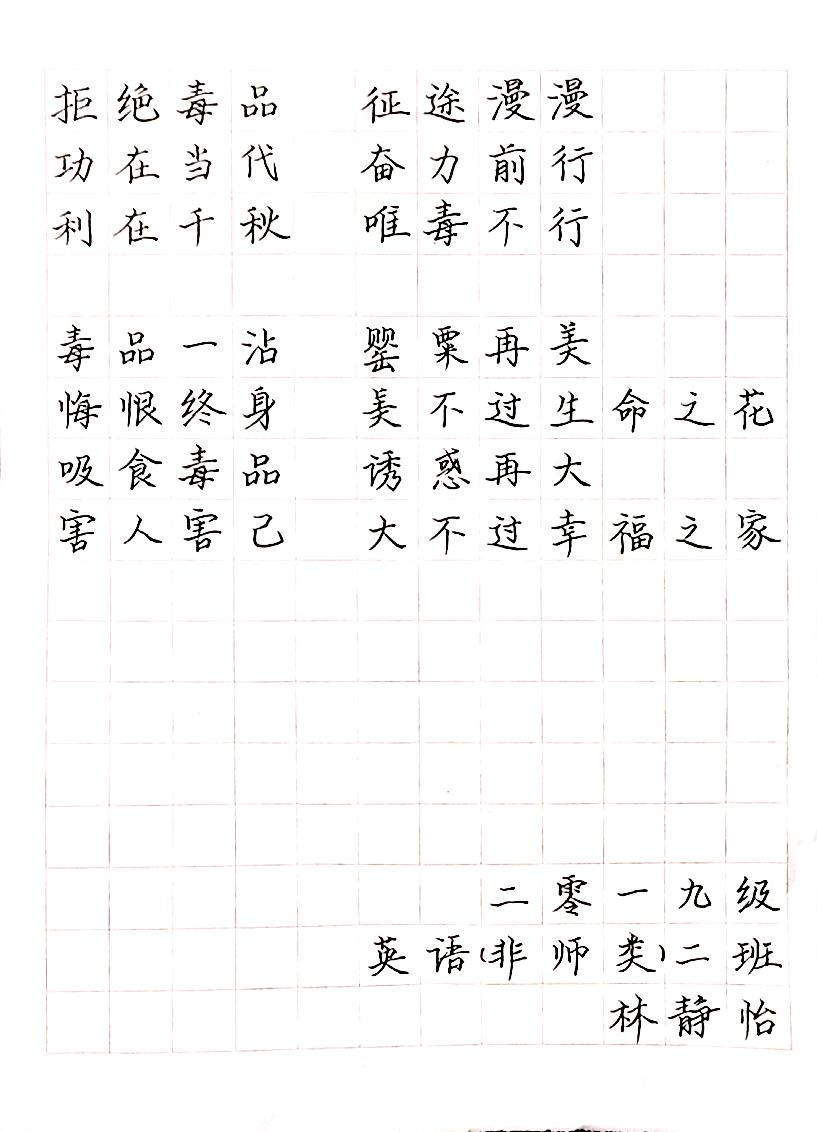 拒绝毒品 征途漫漫
功在当代 奋力前行
利在千秋 唯毒不行
毒品一沾 罂粟再美
悔恨终身 美不过生命之花
吸食毒品 诱惑再大
害人害己 大不过幸福之家
二零一九级
英语(非师类)二班
林静怡